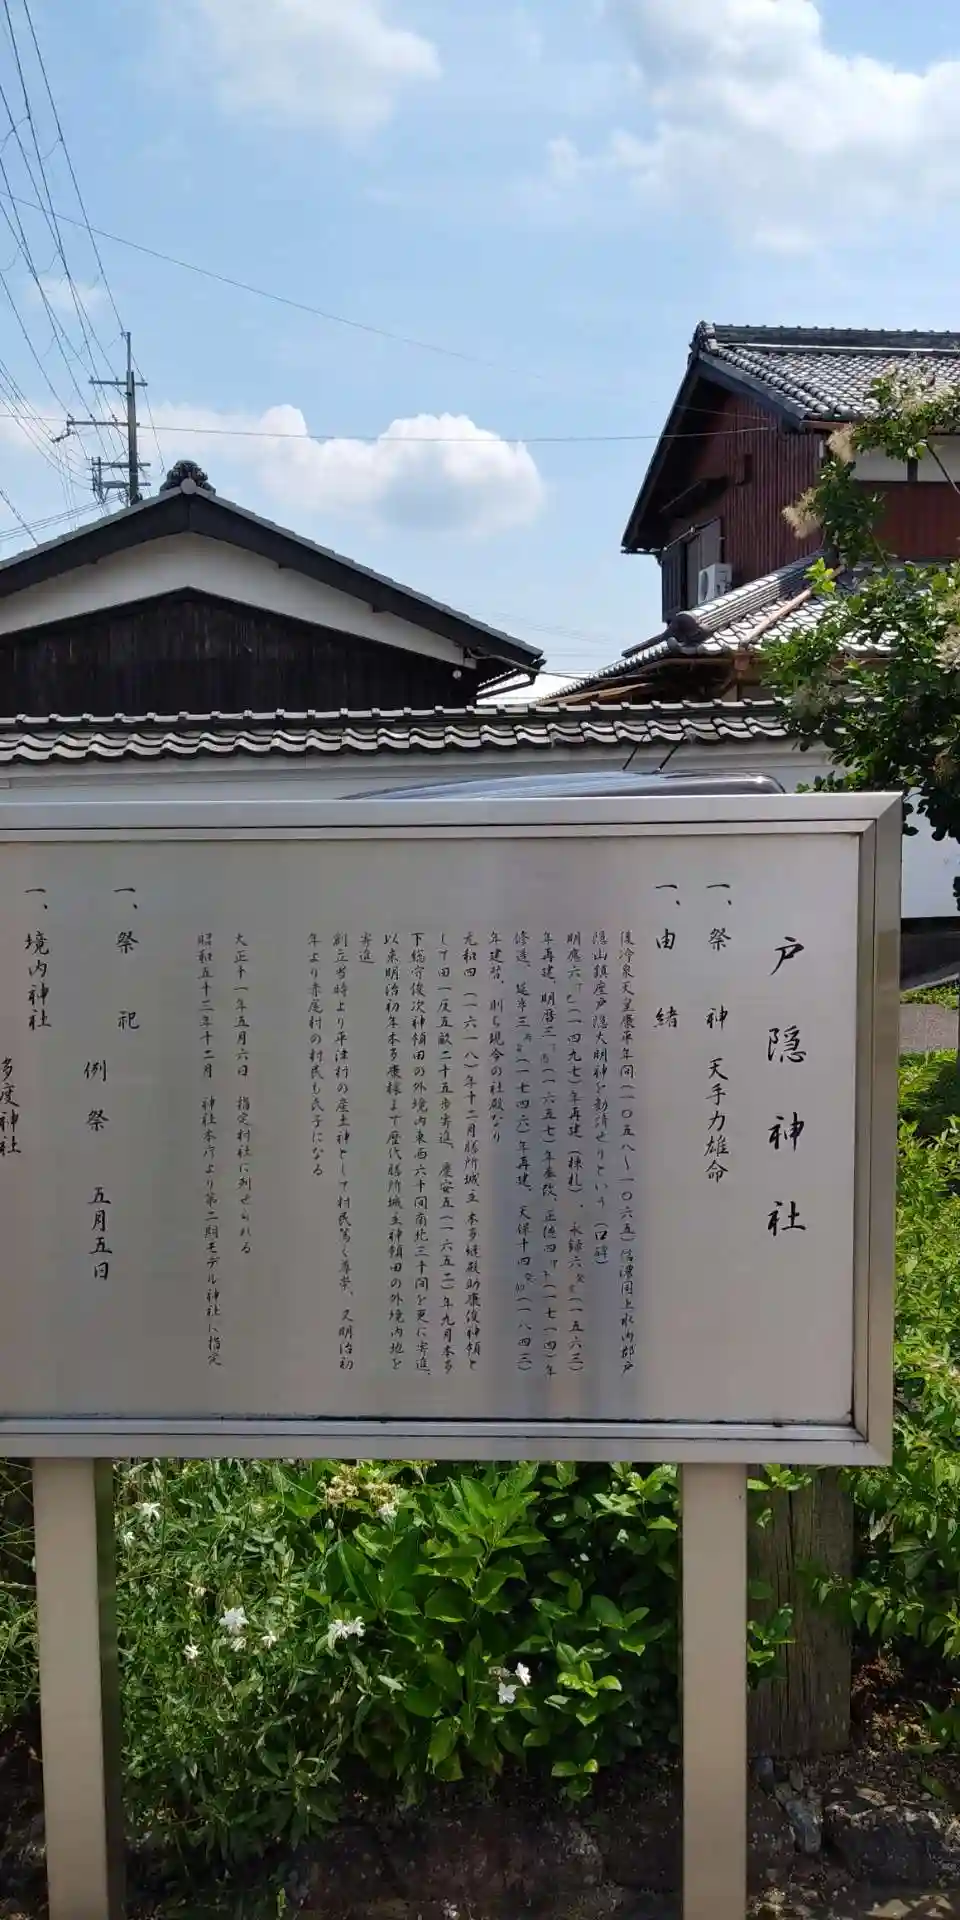 戸隠神社
一、祭神 天手力雄命
一、由緒
後冷泉天皇康平年間(一〇五八〜一〇六五)信濃国上水内郡戸
隠山鎮座戸隠大明神を勧請せりという(口碑)
明應六丁巳(一四九七)年再建(棟札)、永録六癸亥(一五六三)
年再建、明暦三丁酉(一六五七)年重改、正徳四甲午(一七一四)年
修造、延享三丙寅(一七四六)年再建、天保十四癸卯(一八四三)
年建替、則ち現今の社殿なり
元和四(一六一八)年十二月膳所城主本多縫殿助康俊神領と
して田一反五畝二十五歩寄進、慶安五(一六五二)年九月本多
下総守俊次神領田の外境内東西六十間南北三十間を更に寄進、
以来明治初年本多康穣まで歴代膳所城主神領田の外境内地を
寄進
創立当時より平津村の産土神として村民篤く尊崇、又明治初
年より赤尾村の村民も氏子になる
大正十一年五月六日 指定村社に列せられる
昭和五十三年十二月 神社本庁より第二期モデル神社に指定
一、祭祀
例祭 五月五日
一、境内神社
多度神社